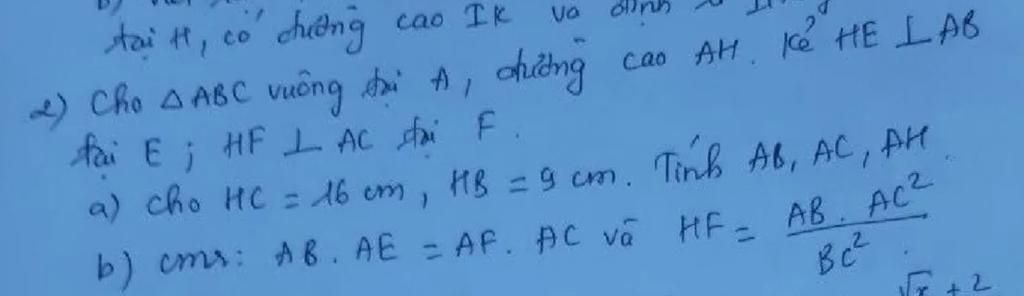 tại H, có đường cao IK và định
2) Cho △ABC vuông tại A, đường cao AH. Kẻ HE ⊥ AB
tại E ; HF ⊥ AC tại F.
a) cho HC = 16 cm, HB = 9 cm. Tính AB, AC, AH.
b) cmr: AB . AE = AF . AC và HF = AB . AC² / BC².
√x + 2